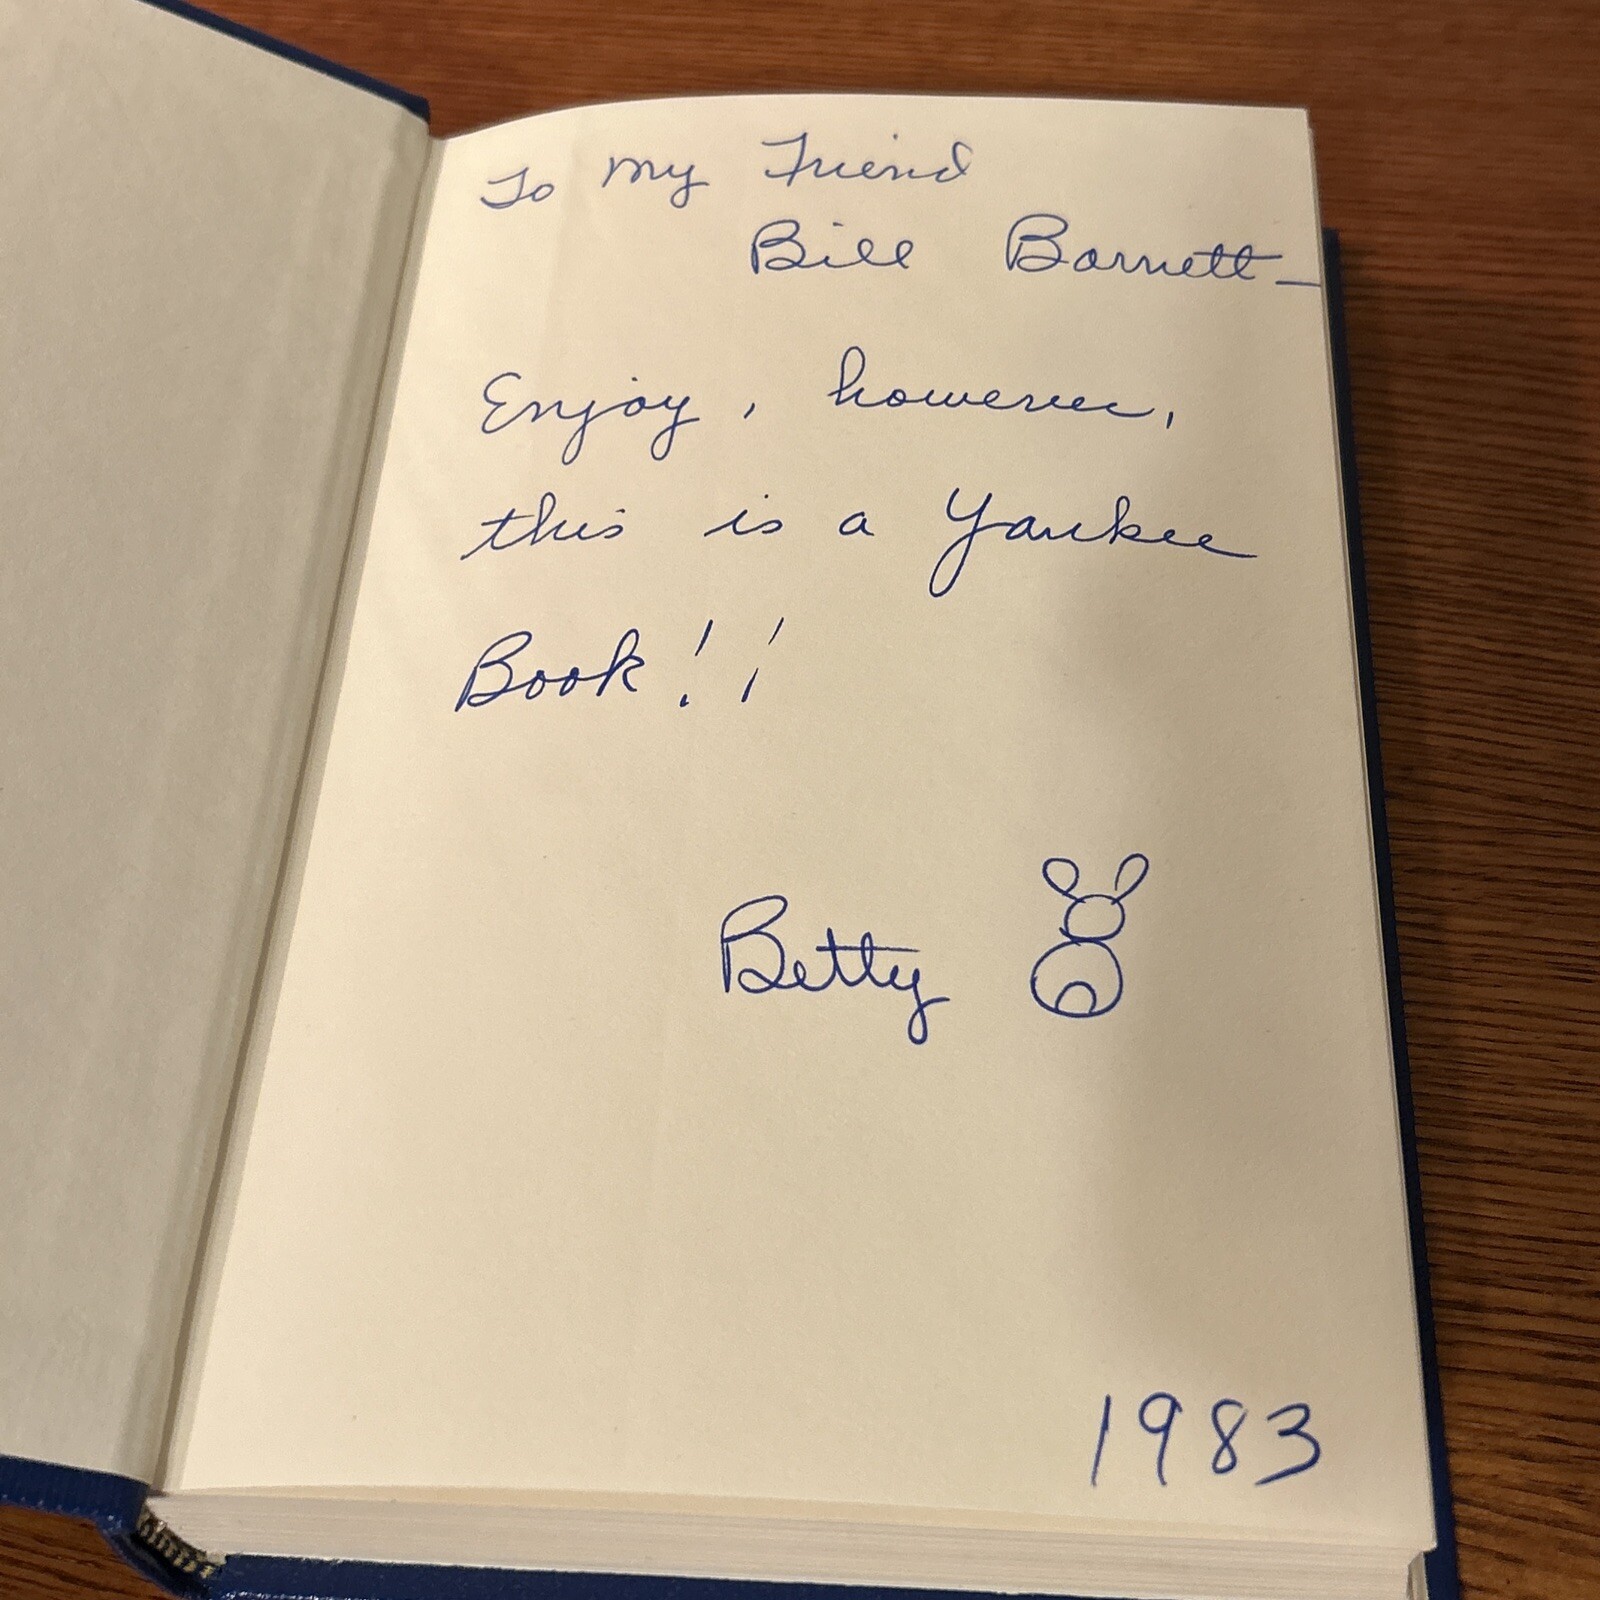 To my Friend
Bill Barnett -
Enjoy, however,
this is a Yankee
Book!!
Betty
1983